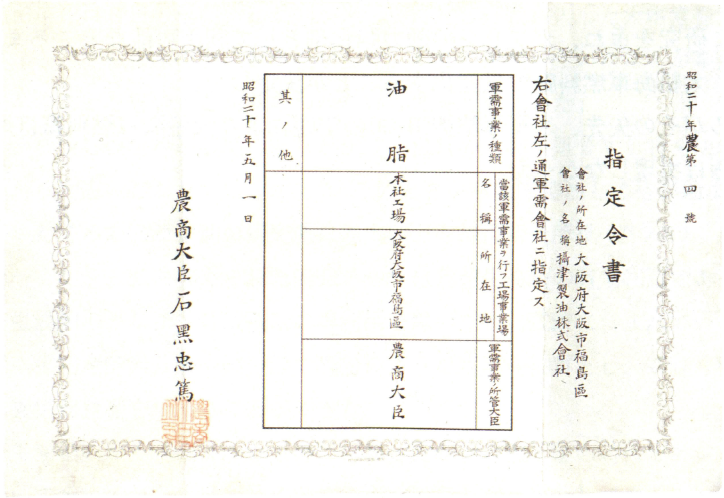 昭和二十年農第四號
指定令書
會社ノ所在地 大阪府大阪市福島區
會社ノ名稱 攝津製油株式會社
右會社左ノ通軍需會社ニ指定ス
軍需事業ノ種類
當該軍需事業ヲ行フ工場事業場
名稱
所在地
軍需事業ノ所管大臣
油脂
本社工場
大阪府大阪市福島區
農商大臣
其ノ他
昭和二十年五月一日
農商大臣石黑忠篤